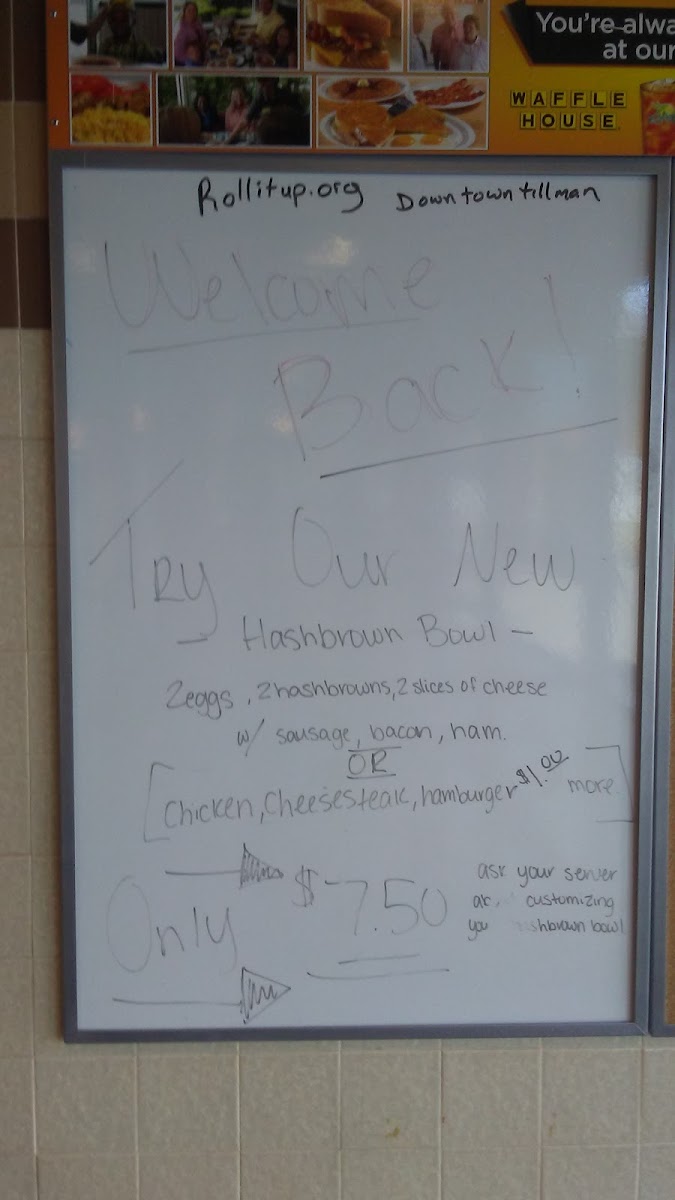 You're alwa
at our
WAFFLE
HOUSE
Rollitup.org Downtowntillman
Welcome
Back!
Try Our New
- Hashbrown Bowl -
2eggs, 2hashbrowns, 2 slices of cheese
w/ sausage, bacon, ham.
OR
[Chicken, Cheesesteak, hamburger $1.00 more.]
Only $7.50
ask your server
customizing
bowl